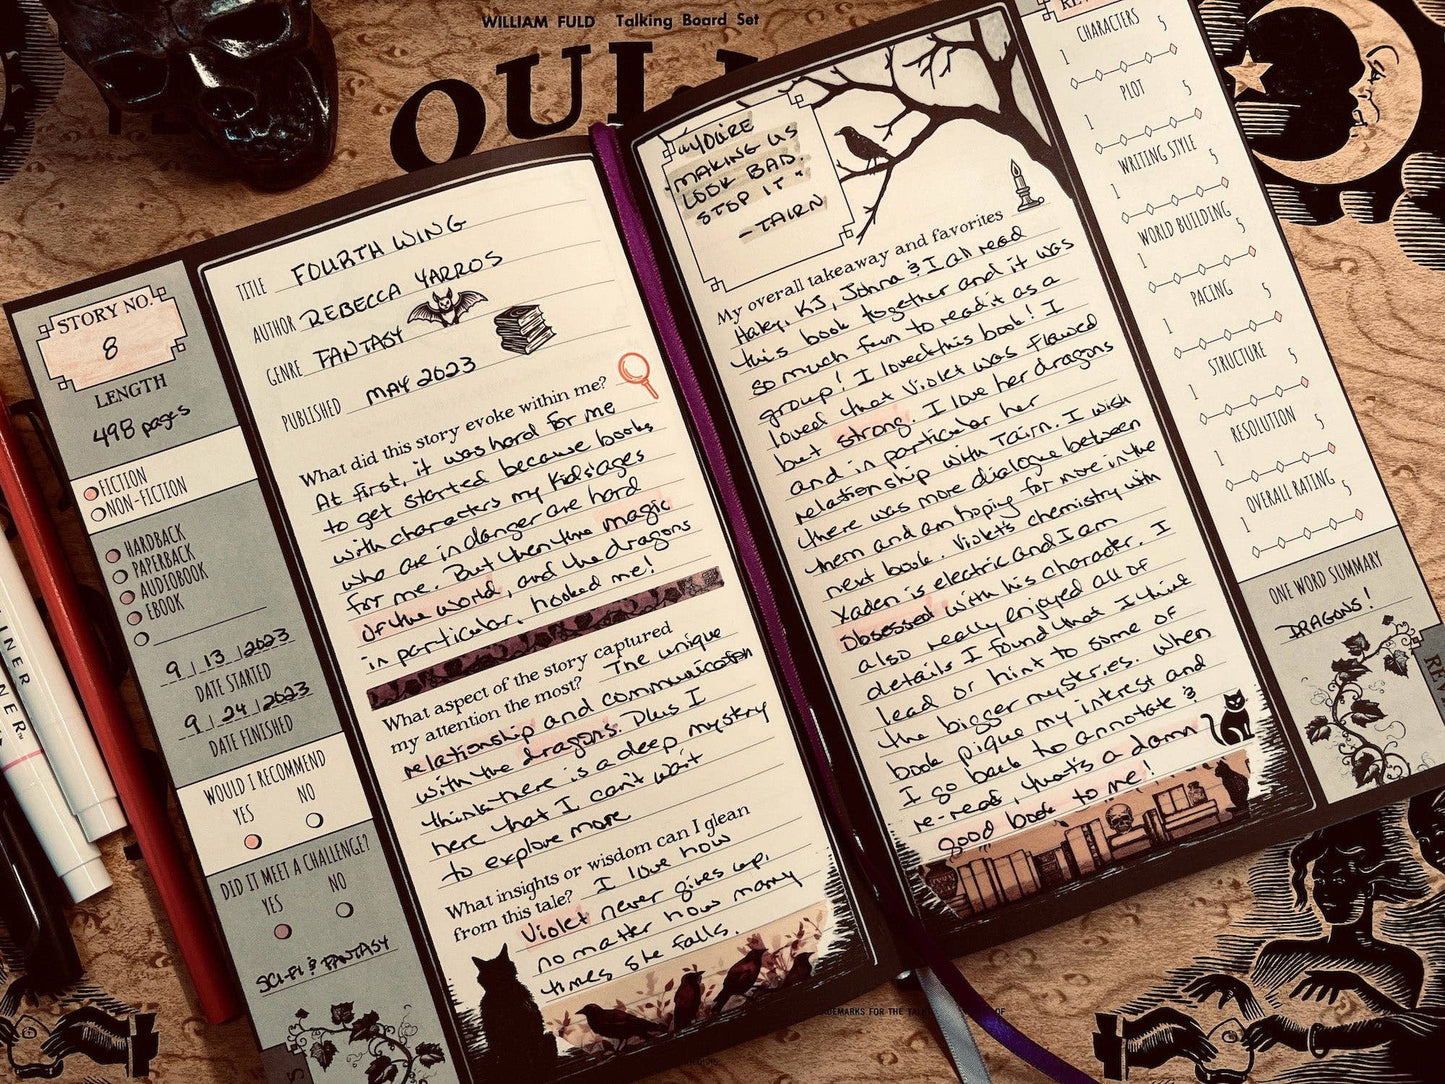 WILLIAM FULD Talking Board Set
OUIJA
STORY NO.
8
LENGTH
498 pages
FICTION
NON-FICTION
HARDBACK
PAPERBACK
AUDIOBOOK
EBOOK
9 | 13 | 2023
DATE STARTED
9 | 24 | 2023
DATE FINISHED
WOULD I RECOMMEND
YES NO
DID IT MEET A CHALLENGE?
YES NO
SCI-FI & FANTASY
TITLE FOURTH WING
AUTHOR REBECCA YARROS
GENRE FANTASY
PUBLISHED MAY 2023
What did this story evoke within me?
At first, it was hard for me
to get started because books
with characters my kids' ages
who are in danger are hard
for me. But then the magic
of the world, and the dragons
in particular, hooked me!
What aspect of the story captured
my attention the most? The unique
relationship and communication
with the dragons. Plus I
think there is a deep mystery
here that I can't wait
to explore more
What insights or wisdom can I glean
from this tale? I love how
Violet never gives up,
no matter how many
times she falls.
"YOU'RE
MAKING US
LOOK BAD.
STOP IT"
-TAIRN
My overall takeaway and favorites
Haley, KJ, Johna & I all read
this book together and it was
so much fun to read it as a
group! I loved this book! I
loved that Violet was flawed
but strong. I love her dragons
and in particular her
relationship with Tairn. I wish
there was more dialogue between
them and am hoping for more in the
next book. Violet's chemistry with
Xaden is electric and I am
Obsessed with his character. I
also really enjoyed all of
details I found that I think
lead or hint to some of
the bigger mysteries. When
book pique my interest and
I go back to annotate &
re-read, that's a damn
good book to me!
CHARACTERS
1 5
PLOT
1 5
WRITING STYLE
1 5
WORLD BUILDING
1 5
PACING
1 5
STRUCTURE
1 5
RESOLUTION
1 5
OVERALL RATING
1 5
ONE WORD SUMMARY
DRAGONS!
REV
INER
NER